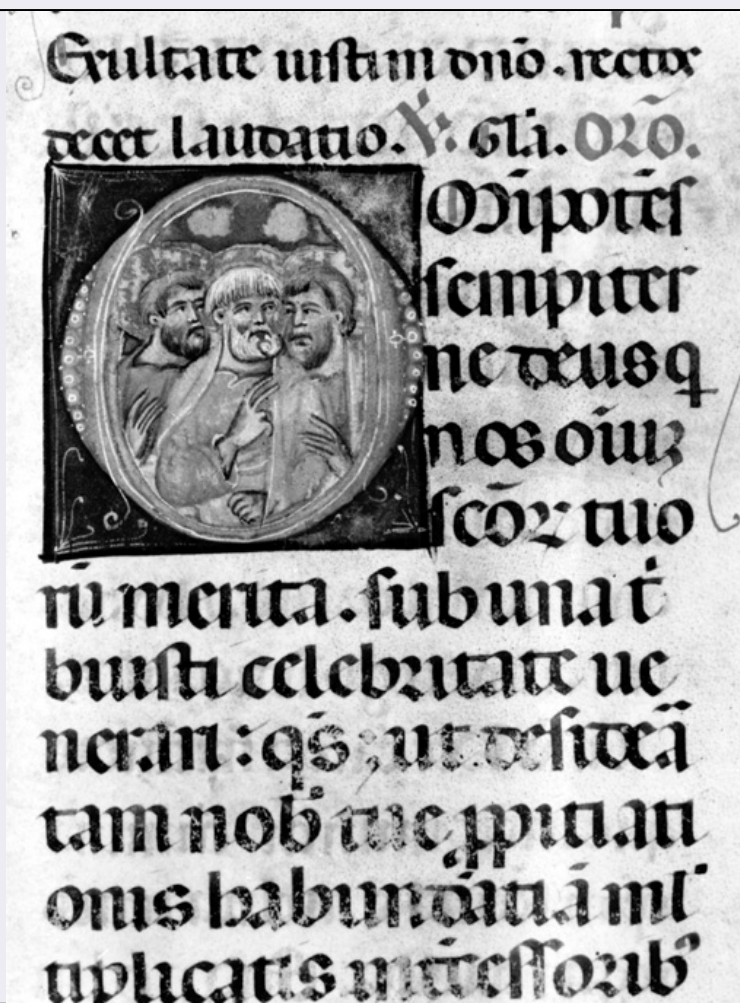 Exultate iusti in dn̄o . rectos
decet laudatio. ℣. Gl̄a. Or̄o.
Om̄ipotēs
sempiter
ne deus q
nos oīuꝫ
sc̄oꝝ tuo
rū merita . sub una t̍
buisti celebritate ue
nerari : qs̄ ; ut desideā
tam nob̄ tue ꝓpitiati
onis habundātiā mł
tiplicatis intercessoribꝰ